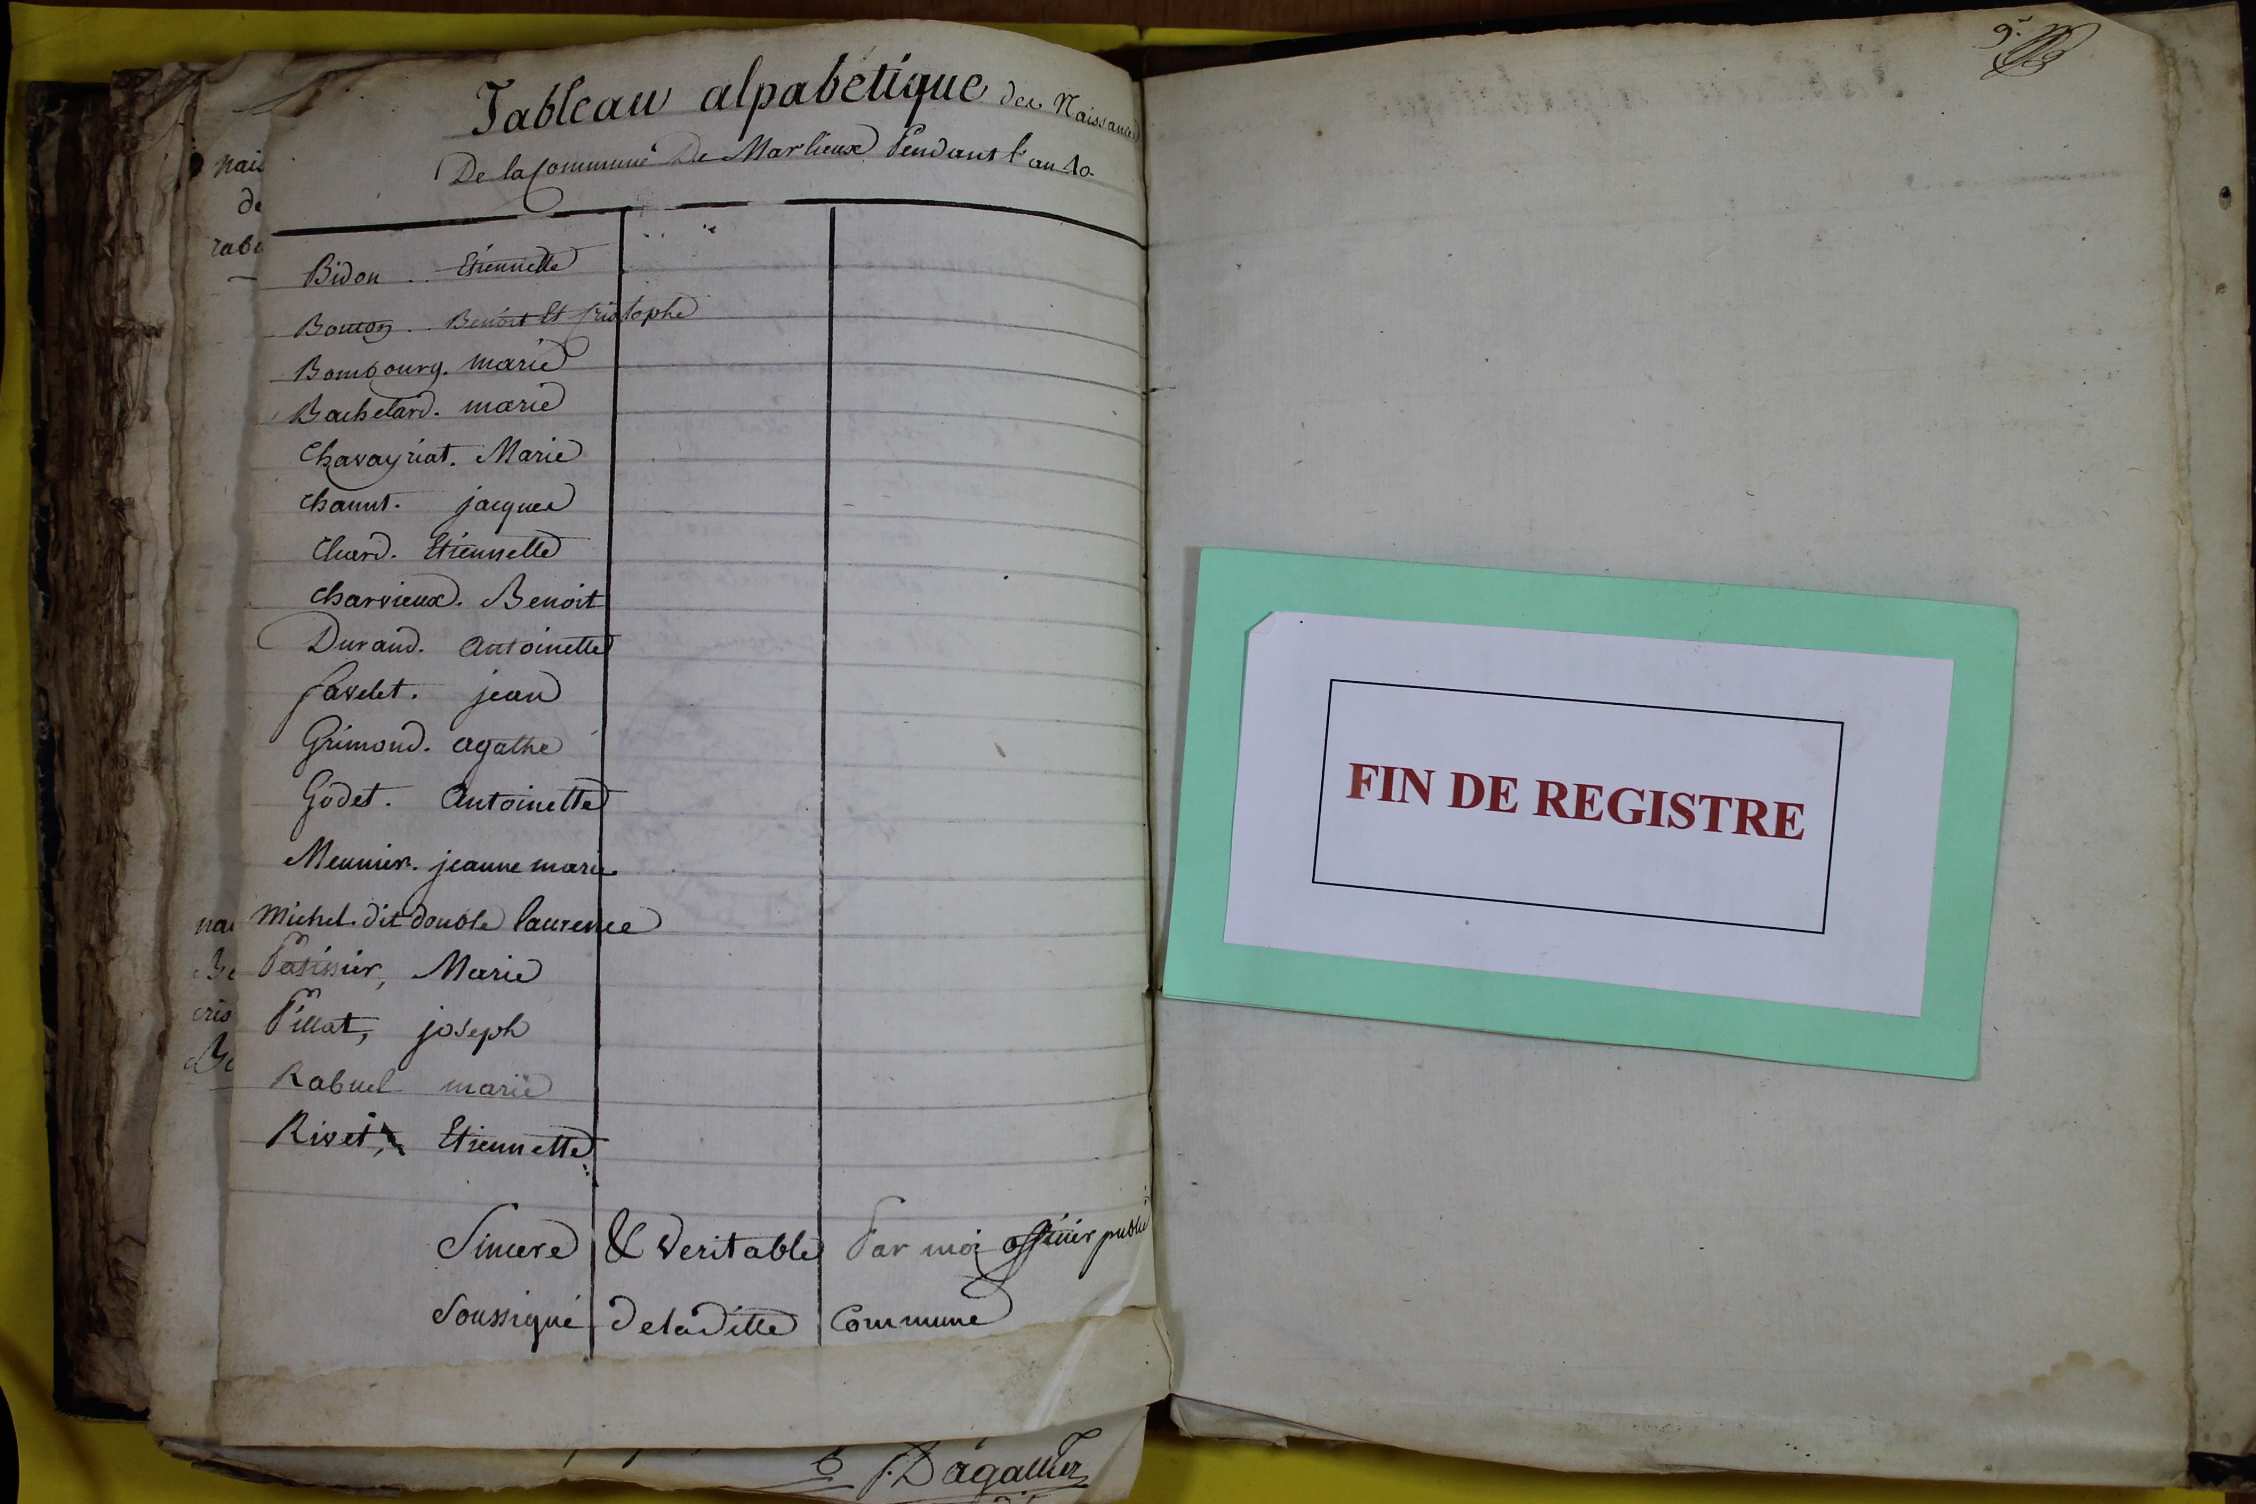 Tableau alpabétique des Naissances
De la Commune De Marlieux Pendant l'an 10
Bidon .. Etiennette
Bouton .. Benoit Et Cristophe
Bombourg. marie
Bachelard. marie
Chavayriat. Marie
Chanut. jacques
Chard. Etiennette
Charvieux. Benoit
Durand. Antoinette
favelet. jean
Grimond. agathe
Godet. Antoinette
Meunier. jeanne marie
Michel dit double laurence
Patissier, Marie
Pillat, joseph
Rabuel marie
Rivet, Etiennette
Sincere & Veritable Par moi officier public
Soussigné de la ditte Commune
nais
de
rabu
nai
Be
cris
Be
Dagallier
9.e
FIN DE REGISTRE